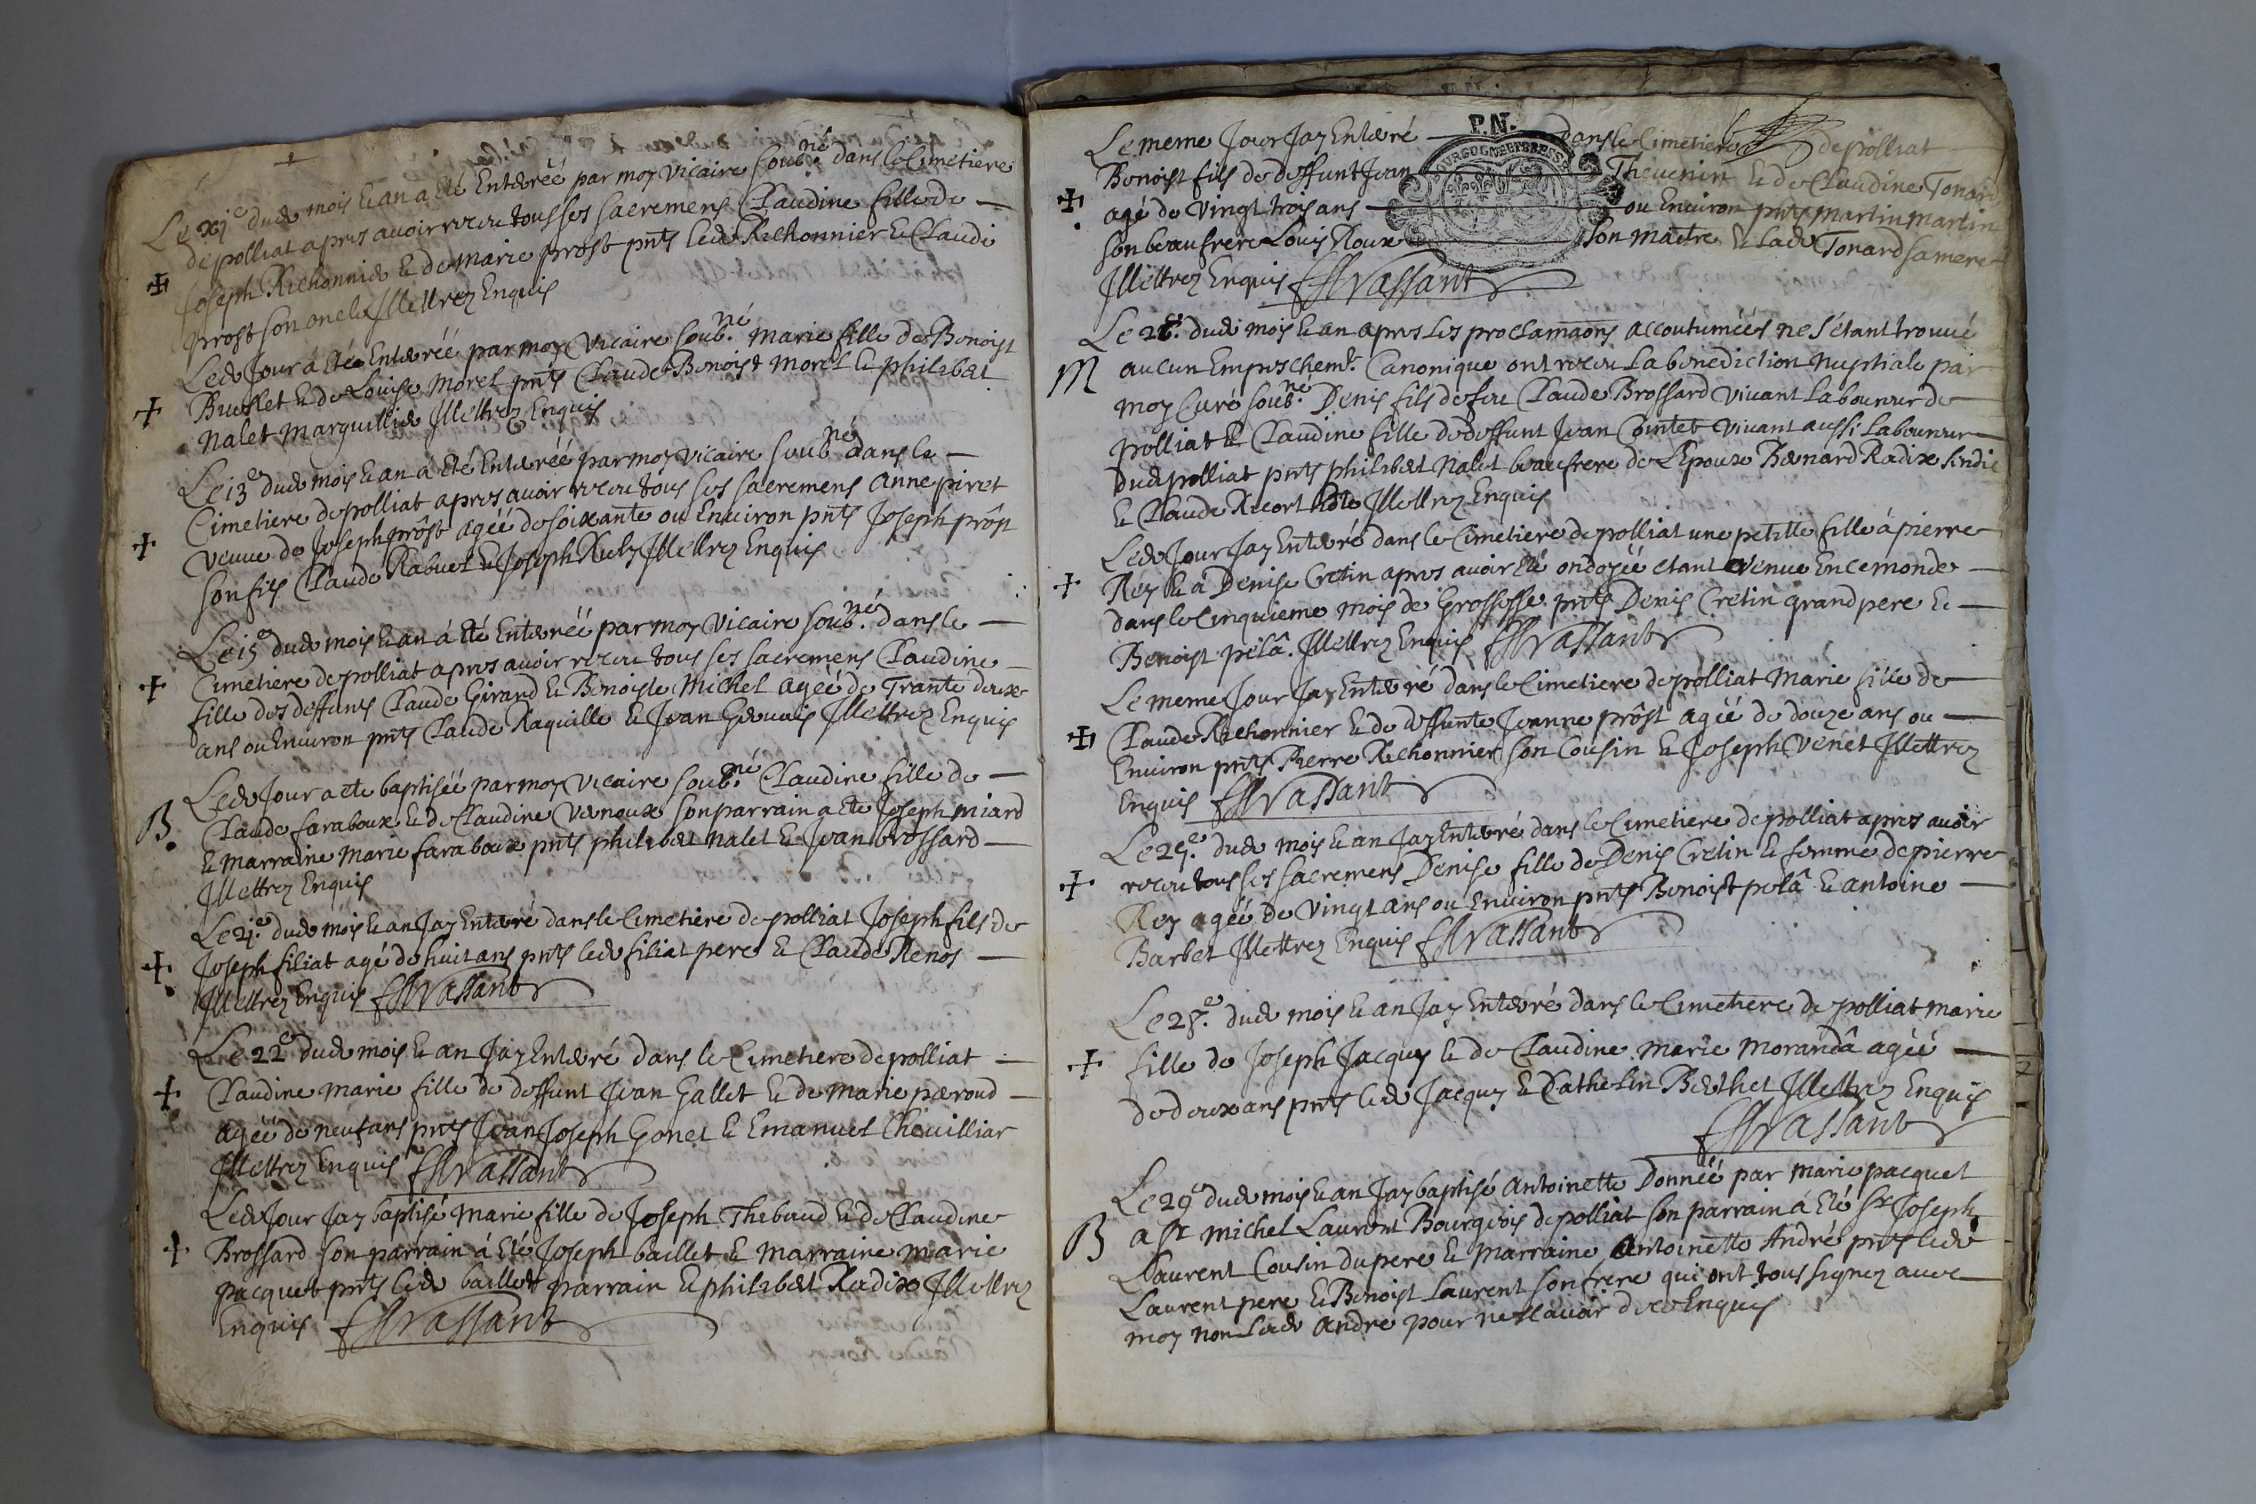 Le xj.e dud. mois & an a été Enterrée par moy vicaire soub.né dans le Cimetiere
de polliat apres avoir receu tous ses sacremens Claudine fille de
Joseph Rechonnier & de Marie prost pnts led. Rechonnier & Claude
prost son oncle Illettrez Enquis
Led. Jour á été Enterréé par moy Vicaire soub.né Marie fille de Benoist
& de Louise Morel pnts Claude Benoist Morel & philibert
Nalet Marguillier Illettrez Enquis
Le 13e dud. mois & an á été Enterréé par moy vicaire soub.né dans le
Cimetiere de polliat apres avoir receu tous ses sacremens Anne piret
veuve de Joseph prôst agéé de soixante ou Environ pnts Joseph prôst
son fils Claude Rabuel & Joseph Illettrez Enquis
Le 15e dud. mois & an á été Enterréé par moy Vicaire soub.né dans le
Cimetiere de polliat apres avoir receu tous ses sacremens Claudine
fille des deffunts Claude Girard & Benoiste Michel agéé de Trante deux
ans ou Environ pnts Claude Raquille & Jean Gervais Illettrez Enquis
B. Led. Jour a été baptiséé par moy Vicaire soub.né Claudine fille de
Claude faraboux & de Claudine Vernoux son parrain a été Joseph Miard
& marraine Marie faraboux pnts philibert Nalet & Jean brossard
Illettrez Enquis
Le 21.e dud. mois & an Jay Enterré dans le Cimetiere de polliat Joseph fils de
Joseph filiat agé de huit ans pnts led. filiat pere & Claude Renos
Illettrez Enquis Vassant
Le 22e dud. mois & an Jay Enterré dans le Cimetiere de polliat
Claudine Marie fille de deffunt Jean Gallet & de Marie peroud
agéé de neuf ans pnts Jean Joseph Gonet & Emanuel Chevilliar
Illettrez Enquis Vassant
Led. Jour Jay baptisé Marie fille de Joseph Thebaud & de Claudine
Brossard son parrain á été Joseph baillet & Marraine Marie
pacquet pnts led. baillet parrain & philibert Radix Illettrez
Enquis Vassant
P.N.
Le meme Jour Jay Enterré dans le Cimetiere de polliat
Benoist fils de deffunt Jean Thevenin & de Claudine Tonard
agé de vingt trois ans ou Environ pnts Martin Martin
son beaufrere Louis Roux son maitre & lad. Tonard sa mere
Illettrez Enquis Vassant
M Le dud. mois & an apres les proclamaons accoutuméés ne s'étant trouvé
aucun Empeschemt. Canonique ont receu La benediction Nuptiale par
moy Curé soub.né Denis fils de feu Claude Brossard vivant Laboureur de
polliat & Claudine fille de deffunt Jean Cointet vivant aussi Laboureur
dud. polliat pnts philibert Nalet beaufrere de L'Epoux Bernard Radix sindic
& Claude Recort Illettrez Enquis
Led. Jour Jay Enterré dans le Cimetiere de polliat une petitte fille á pierre
Rey & á Denise Cretin apres avoir été ondoyéé etant Venue En ce monde
dans le Cinquieme mois de Grossesse pnts Denis Cretin grand pere &
Benoist pelâ. Illettrez Enquis Vassant
Le meme Jour Jay Enterré dans le Cimetiere de polliat Marie fille de
Claude Rechonnier & de deffunte Jeanne prôst agéé de douze ans ou
Environ pnts Pierre Rechonnier son Cousin & Joseph Venet Illettrez
Enquis Vassant
Le 25.e dud. mois & an Jay Enterré dans le Cimetiere de polliat apres avoir
receu tous ses sacremens Denise fille de Denis Cretin & femme de pierre
Rey agéé de Vingt ans ou Environ pnts Benoist pelâ & antoine
Barbet Illettrez Enquis Vassant
Le 28.e dud. mois & an Jay Enterré dans le Cimetiere de polliat Marie
fille de Joseph Jacquy & de Claudine Marie Morandâ agéé
de deux ans pnts led. Jacquy & Cathelin Berthet Illettrez Enquis
Vassant
B Le 29e dud. mois & an Jay baptisé Antoinette Donnéé par Marie pacquet
a sr Michel Laurent Bourgeois de polliat son parrain á été sr Joseph
Laurent Cousin du pere & Marraine Antoinette André pnts led.
Laurent pere & Benoist Laurent son frere qui ont tous signez avec
moy non Lad. André pour ne sçavoir de ce Enquis